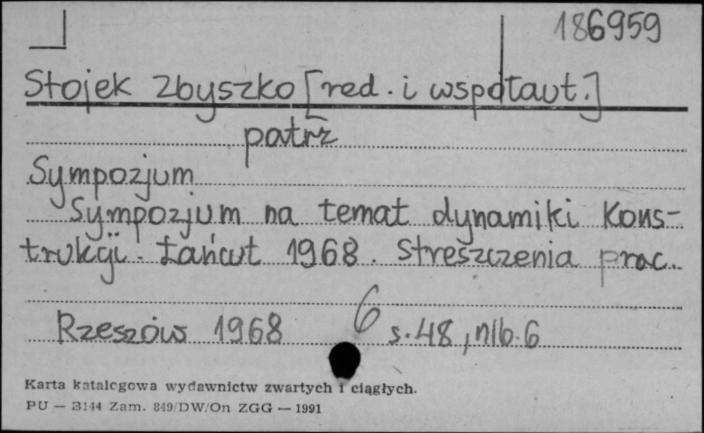 186959
Stojek Zbyszko [red. i współaut.]
patrz
Sympozjum
Sympozjum na temat dynamiki Kons-
trukcji. Łańcut 1968. Streszczenia prac.
Rzeszów 1968 6 s. 48, nlb. 6
Karta katalogowa wydawnictw zwartych i ciągłych.
PU — 3144 Zam. 849/DW/On ZGG — 1991